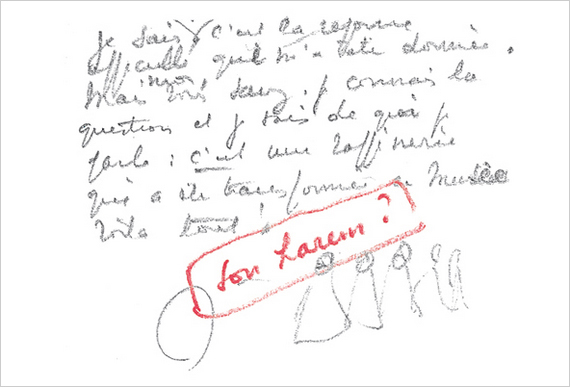 Je sais, c'est la réponse
officielle qui m'a été donnée.
Mais moi, je connais la
question et je sais de quoi je
parle : c'est une raffinerie
qui a été transformée en Musée
voilà tout !
Son harem ?